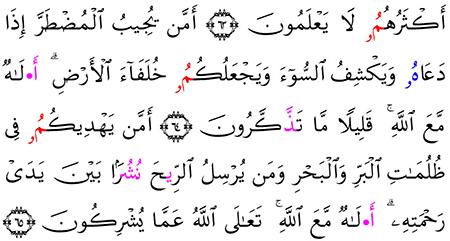 أَكْثَرُهُمُۥ لَا يَعْلَمُونَ ٦٣ أَمَّن يُجِيبُ ٱلْمُضْطَرَّ إِذَا
دَعَاهُۥ وَيَكْشِفُ ٱلسُّوٓءَ وَيَجْعَلُكُمُۥ خُلَفَآءَ ٱلْأَرْضِ ۗ أَ•لَٰهٌ
مَّعَ ٱللَّهِ ۚ قَلِيلًا مَّا تَذَّكَّرُونَ ٦٤ أَمَّن يَهْدِيكُمُۥ فِى
ظُلُمَٰتِ ٱلْبَرِّ وَٱلْبَحْرِ وَمَن يُرْسِلُ ٱلرِّيحَ نُشُرًۢا بَيْنَ يَدَىْ
رَحْمَتِهِۦٓ ۗ أَ•لَٰهٌ مَّعَ ٱللَّهِ ۚ تَعَٰلَى ٱللَّهُ عَمَّا يُشْرِكُونَ ٦٥